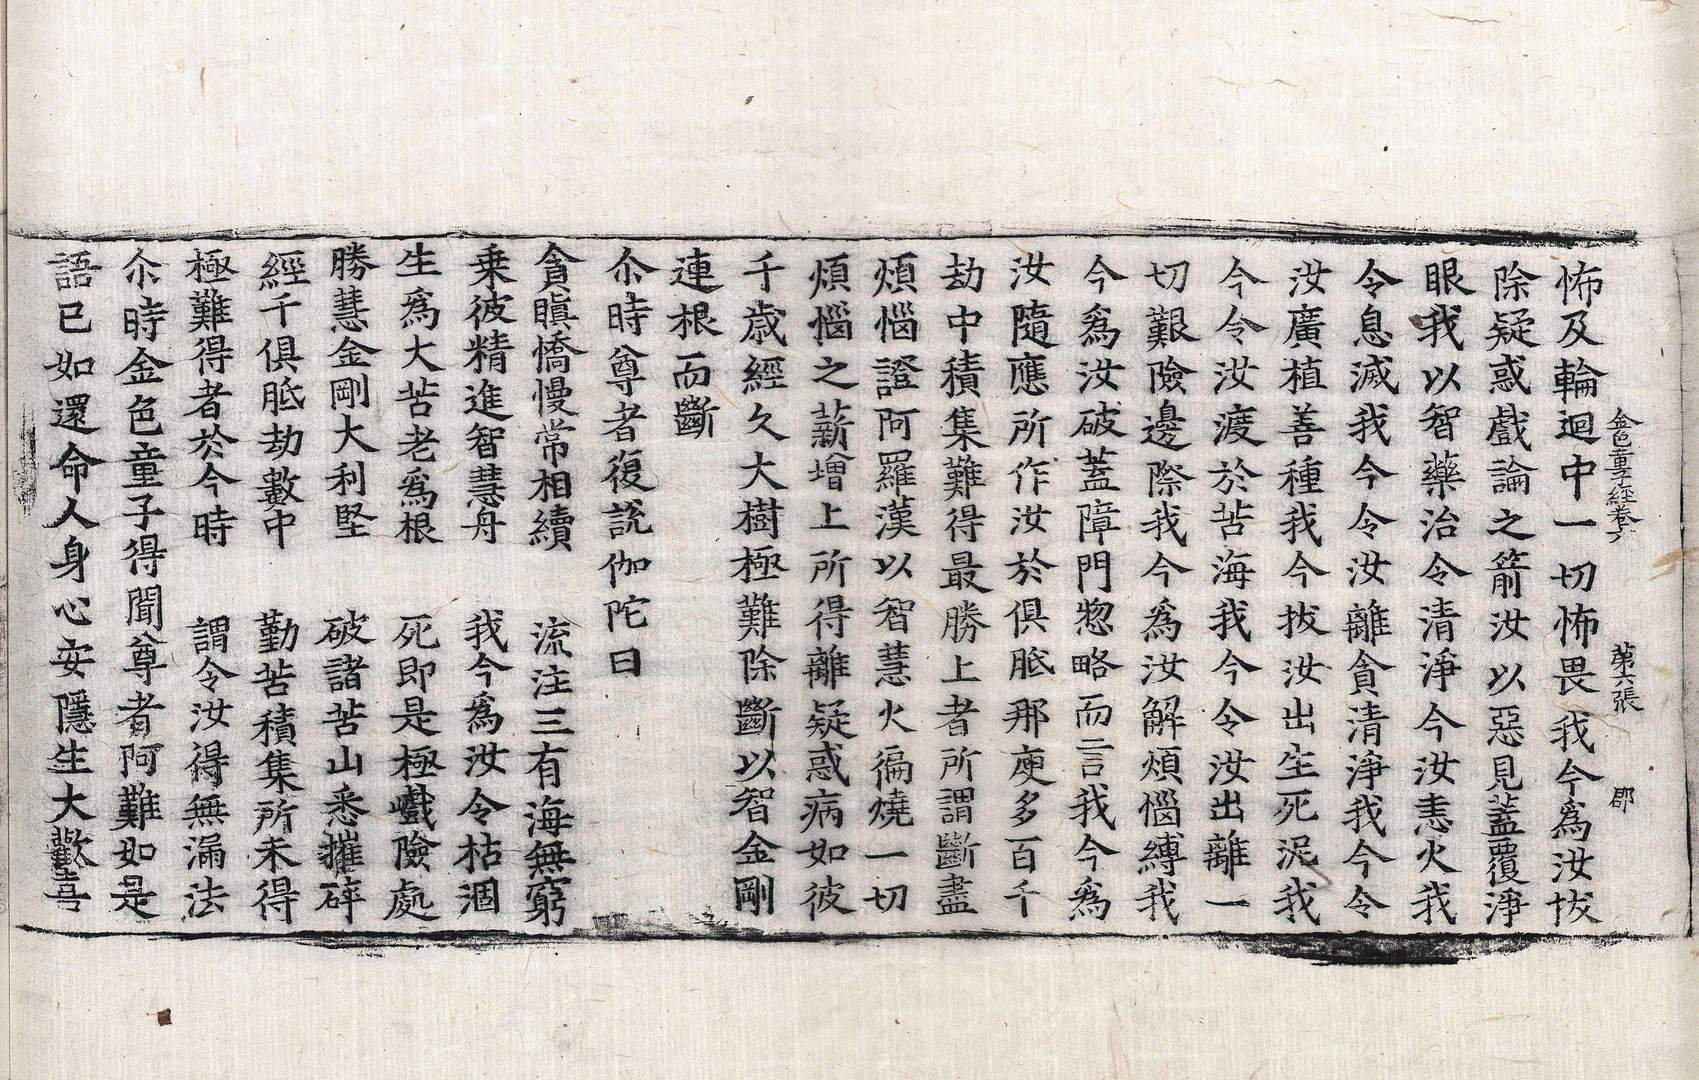 金色童子經卷六　第六張　郡
怖及輪迴中一切怖畏我今爲汝拔
除疑惑戲論之箭汝以惡見蓋覆淨
眼我以智藥治令清淨今汝恚火我
令息滅我今令汝離貪清淨我今令
汝廣植善種我今拔汝出生死泥我
今令汝渡於苦海我今令汝出離一
切艱險邊際我今爲汝解煩惱縛我
今爲汝破蓋障門惣略而言我今爲
汝隨應所作汝於俱胝那庾多百千
劫中積集難得最勝上者所謂斷盡
煩惱證阿羅漢以智慧火徧燒一切
煩惱之薪增上所得離疑惑病如彼
千歲經久大樹極難除斷以智金剛
連根而斷
尒時尊者復說伽陀曰
貪瞋憍慢常相續　流注三有海無窮
乗彼精進智慧舟　我今爲汝令枯涸
生爲大苦老爲根　死即是極巇險處
勝慧金剛大利堅　破諸苦山悉摧碎
經千俱胝劫數中　勤苦積集所未得
極難得者於今時　謂令汝得無漏法
尒時金色童子得聞尊者阿難如是
語已如還命人身心安隱生大歡喜